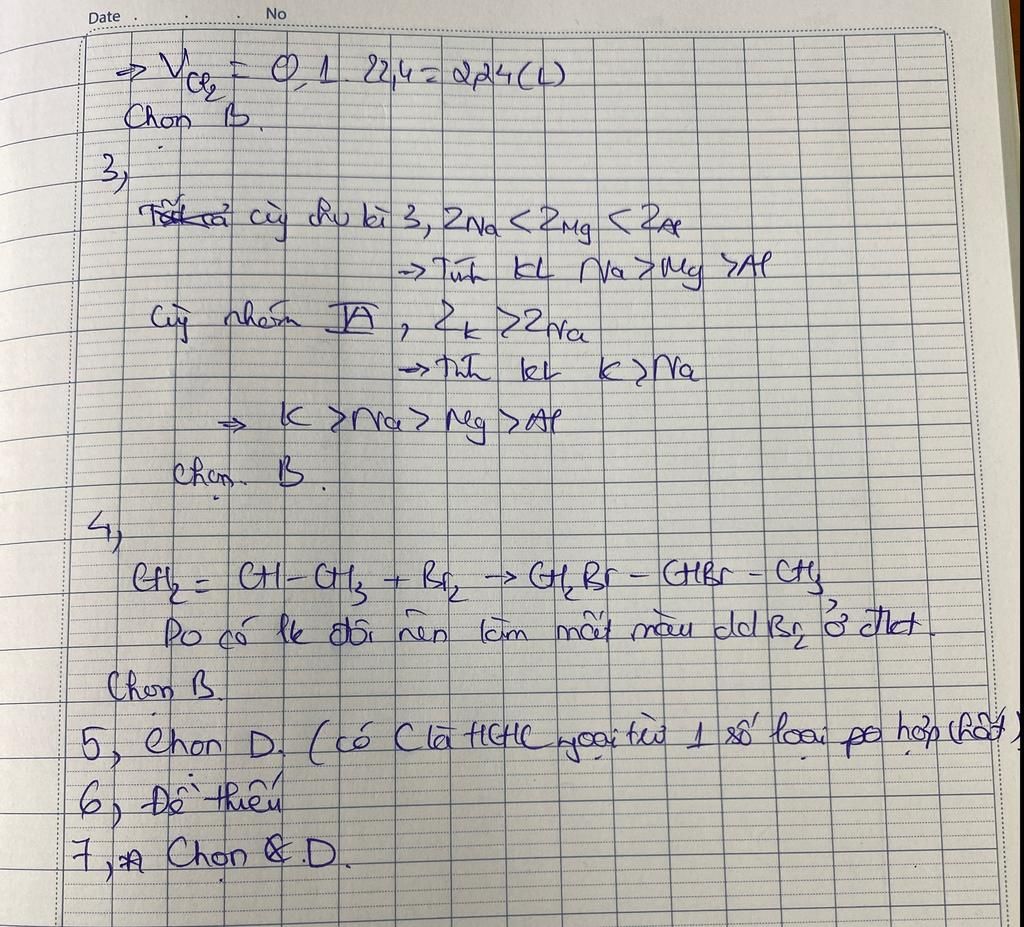 Date . . . No
⇒ V_Cl₂ = 0,1 . 22,4 = 2,24 (L)
Chọn B.
3,
Tất cả cùng chu kì 3, Z_Na < Z_Mg < Z_Al
→ Tính KL Na > Mg > Al
Cùng nhóm IA, Z_K > Z_Na
→ Tính KL K > Na
⇒ K > Na > Mg > Al
Chọn B.
4,
CH₂ = CH – CH₃ + Br₂ → CH₂Br – CHBr – CH₃
Do có lk đôi nên làm mất màu dd Br₂ ở đkt
Chọn B.
5, Chọn D. (có C là HCHC ngoại từ 1 số loại hợp chất)
6, Đề thiếu
7, Chọn D.